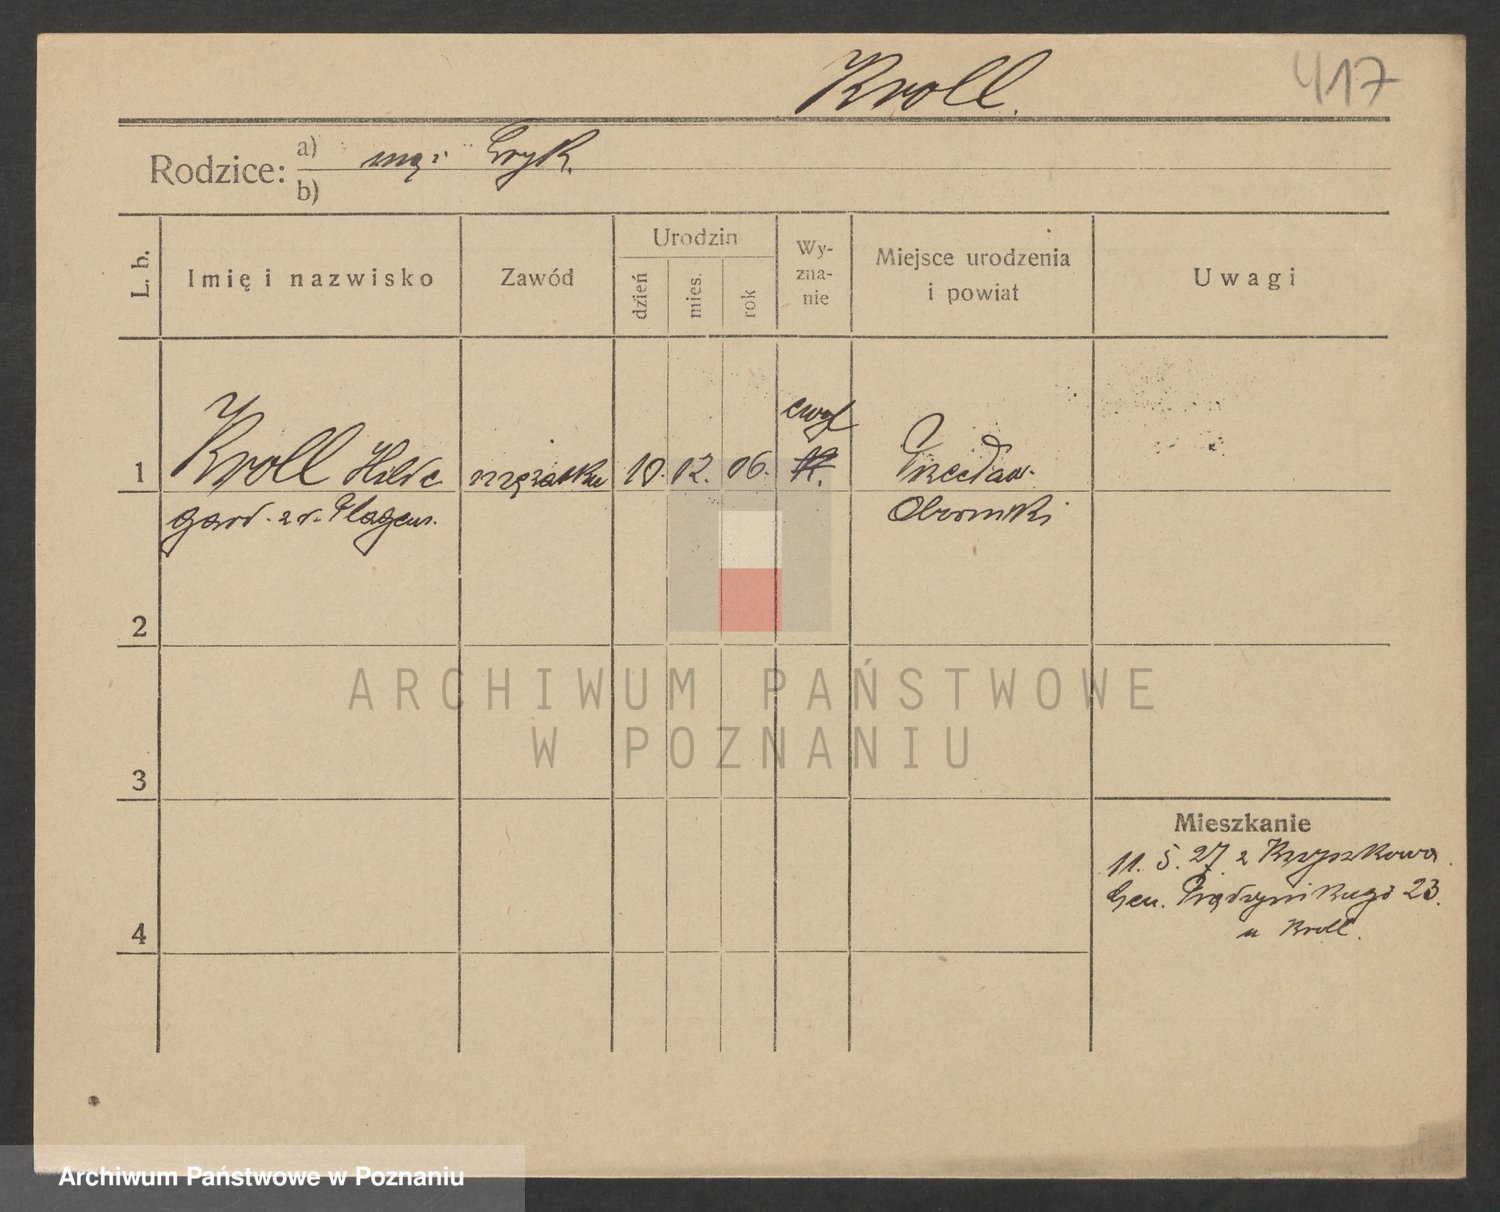 Kroll.
417
Rodzice: a) mąż Eryk.
b)
L. b.
Imię i nazwisko
Zawód
Urodzin
dzień
mies.
rok
Wy-
zna-
nie
Miejsce urodzenia
i powiat
Uwagi
1 Kroll Hilde mężatka 10. 12. 06. ewgl
gard. z d. Plagens.
Obornicki
2
ARCHIWUM PAŃSTWOWE
W POZNANIU
3
Mieszkanie
11. 5. 27. z Krzyszkowa
Gen. Prądzyńskiego 23.
u Kroll.
4
Archiwum Państwowe w Poznaniu